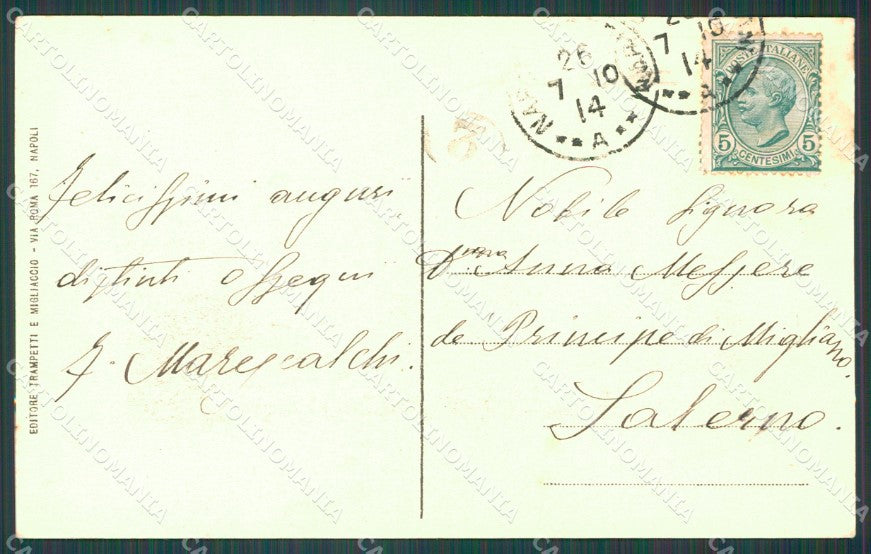 EDITORE TRAMPETTI E MIGLIACCIO - VIA ROMA 167, NAPOLI
Felicissimi auguri
distinti ossequi
F. Marescalchi.
26
7 10
14
NAP
** A **
26
7 10
14
** A **
POSTE ITALIANE
5 5
CENTESIMI
Nobile Signora
D.nna Anna Messere
de Principe di Migliano.
Salerno.
CARTOLINOMANIA